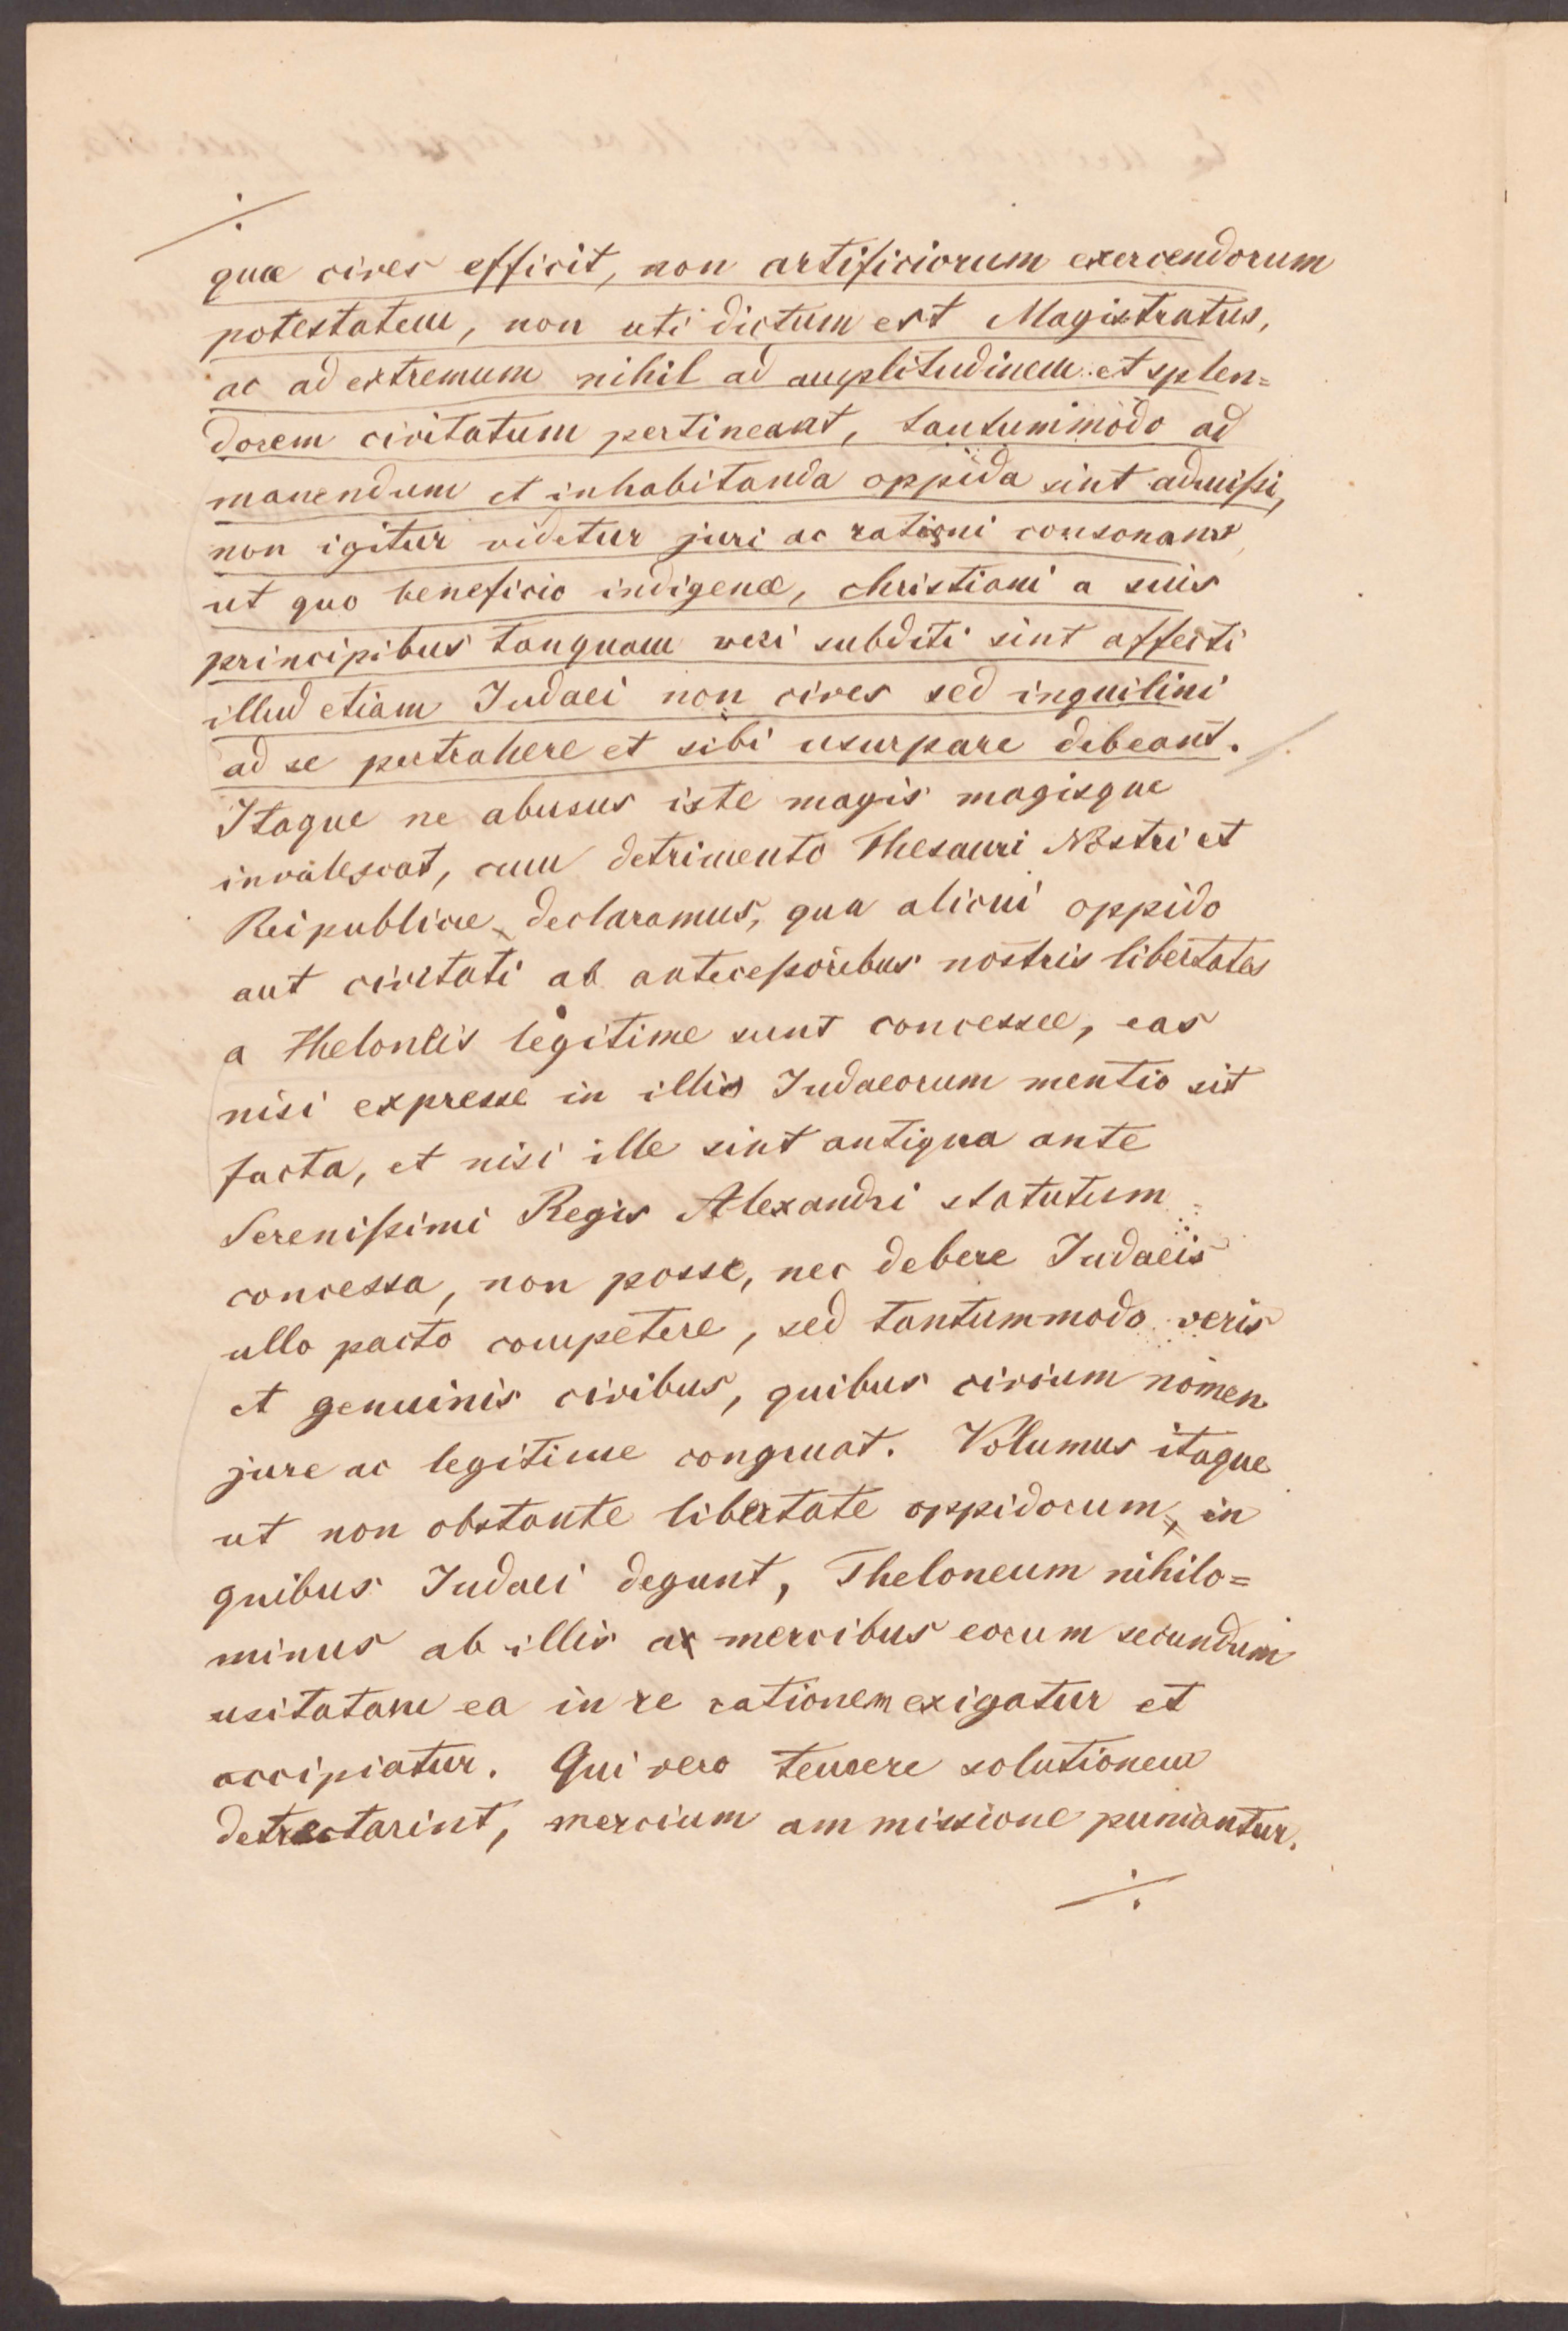 quæ cives efficit, non artificiorum exercendorum
potestatem, non uti dictum est Magistratus,
ac ad extremum nihil ad amplitudinem et splen=
dorem civitatum pertineant, tantummodo ad
manendum et inhabitanda oppida sint admißi,
non igitur videtur juri ac rationi consonans
ut quo beneficio indigenæ, christiani a suis
principibus tanquam veri subditi sint affecti
illud etiam Judaei non cives sed inquilini
ad se pertrahere et sibi usurpare debeant.
Itaque ne abusus iste magis magisque
invalescat, cum detrimento Thesauri Nostri et
Reipublicæ declaramus, qua alicui oppido
aut civitati ab anteceßoribus nostris libertates
a theloneis legitime sunt concessæ, eas
nisi expresse in illis Judaeorum mentio sit
facta, et nisi ille sint antiqua ante
Serenißimi Regis Alexandri statutum
concessa, non posse, nec debere Judaeis
ullo pacto competere, sed tantummodo veris
et genuinis civibus, quibus civium nomen
jure ac legitime congruat. Volumus itaque
ut non obstante libertate oppidorum, in
quibus Judaei degunt, Theloneum nihilo=
minus ab illis ac mercibus eorum secundum
usitatam ea in re rationem exigatur et
accipiatur. Qui vero temere solutionem
detrectarint, mercium ammissione puniantur.